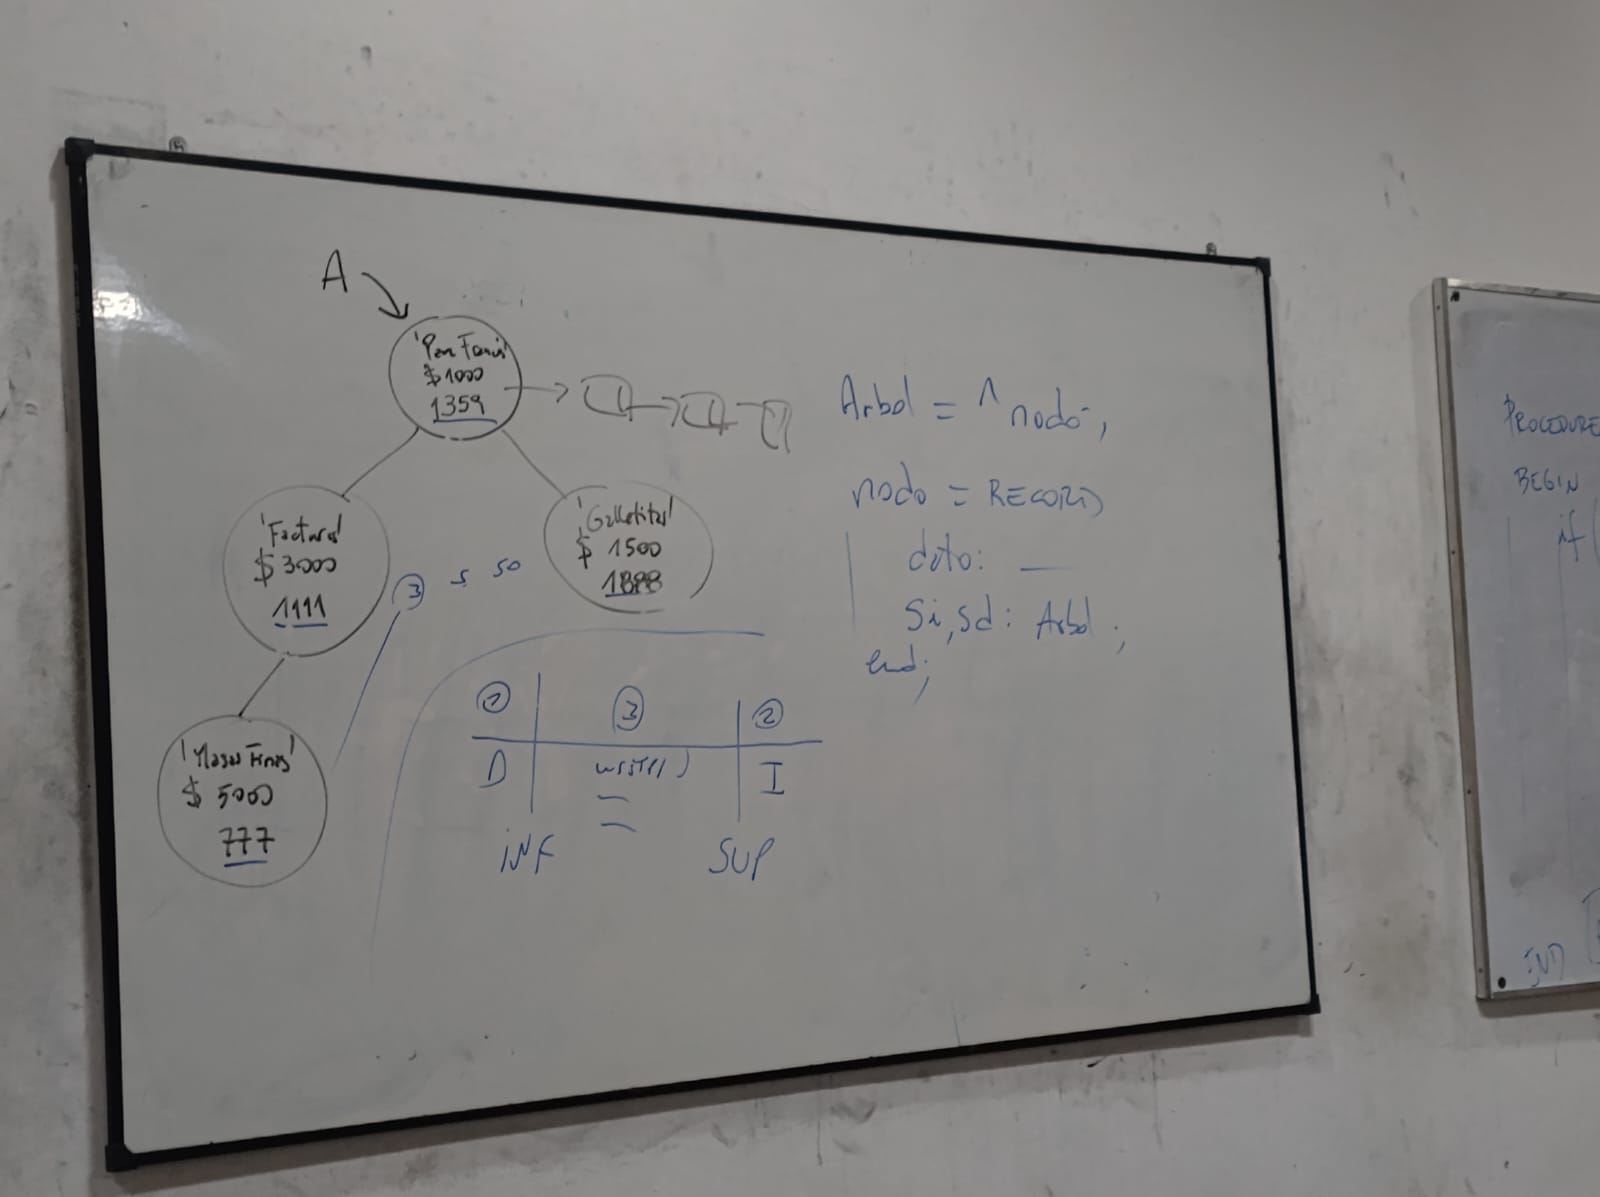 A
'Pan Francés'
$1000
1359
'Facturas'
$3000
1111
'Galletitas'
$ 1500
1888
3 5 50
'Masas Finas'
$ 5000
777
2 3 2
D write() I
INF SUP
Arbol = ^ nodo;
nodo = RECORD
dato: __
Si, sd: Arbol;
end;
PROCEDURE
BEGIN
if (
END